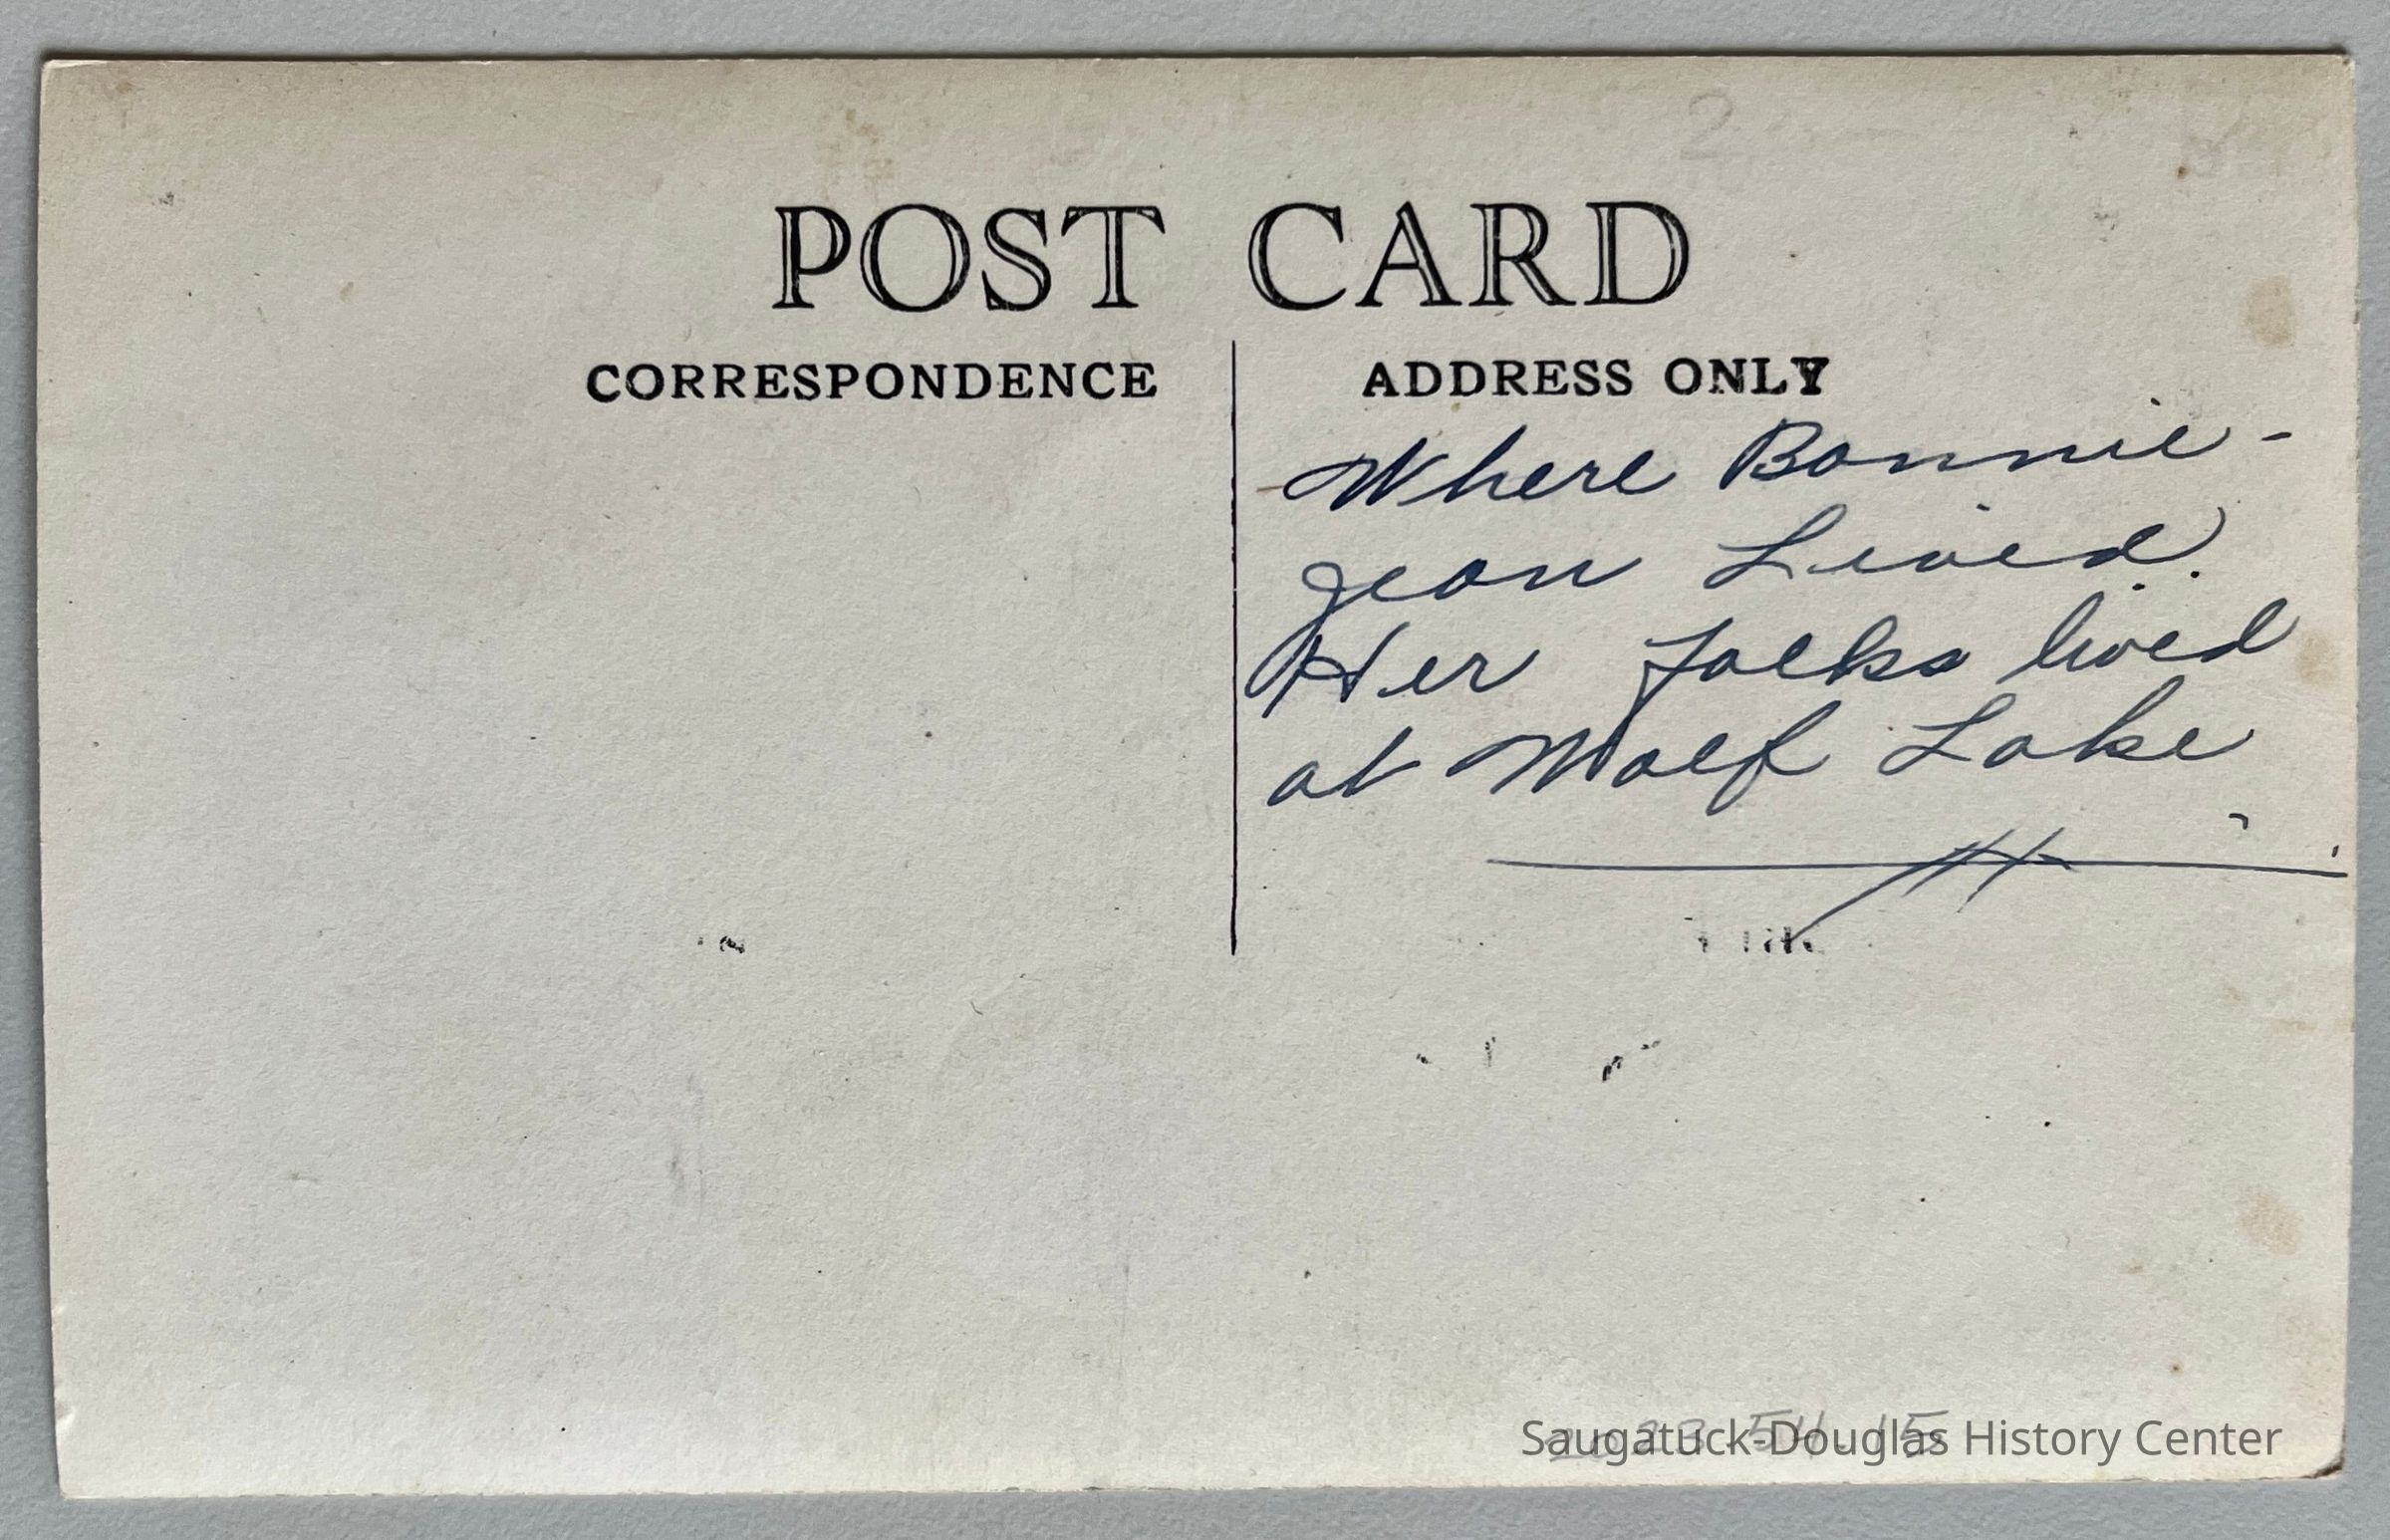 2
POST CARD
CORRESPONDENCE
ADDRESS ONLY
Where Bonnie-
Jean Lived.
Her Folks lived
at Wolf Lake
2023.54.15
Saugatuck-Douglas History Center